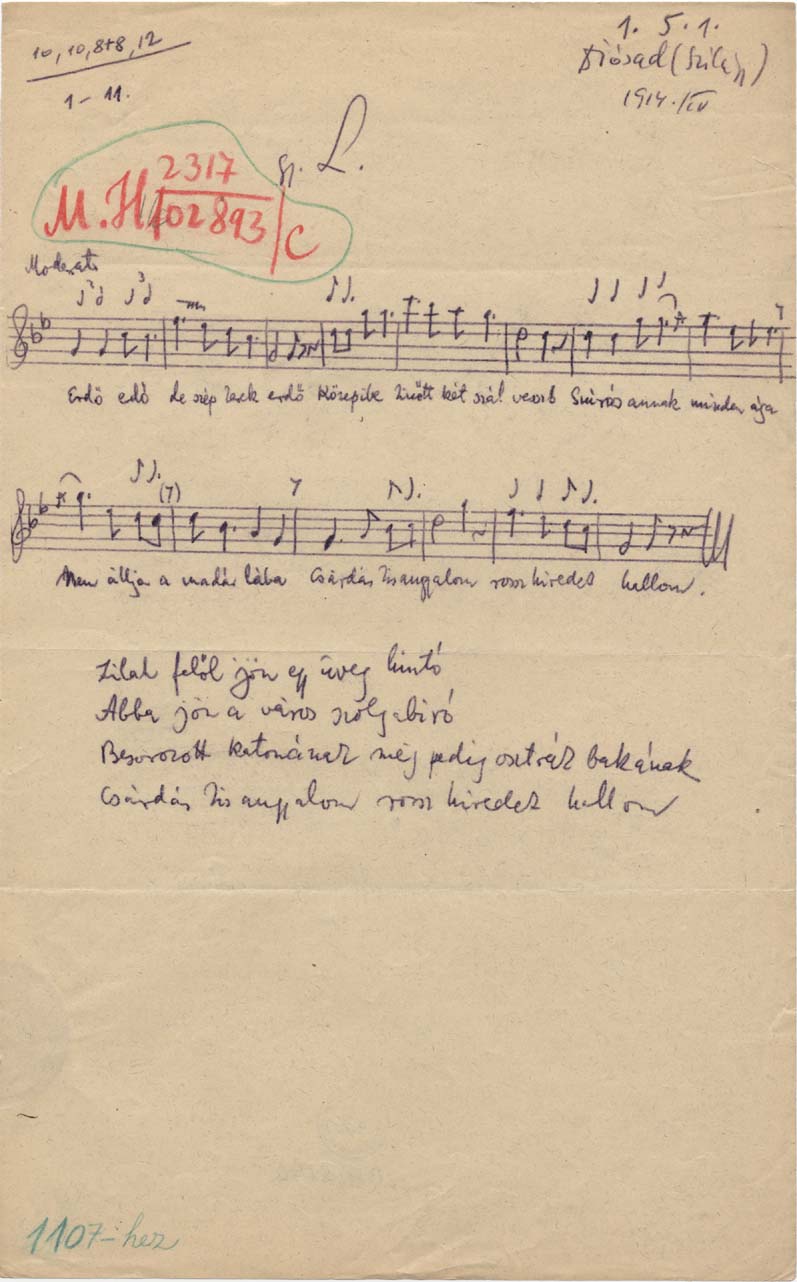 10, 10, 8+8, 12
1–11.
1. 5. 1.
Diósad (Szilágy)
1914. IV
2317
L.
M.H. 02893/C
Moderato
Erdő erdő de szép kerek erdő Közepibe két szál vessző Szúrós annak minden ága
(7)
7
Nem állja a madár lába Csárdás kis angyalom rossz hiredet hallom.
Zilah felől jön egy üveg hintó
Abba jön a város szolgabiró
Besorozott katonának még pedig osztrák bakának
Csárdás kis angyalom rossz hiredet hallom
1107-hez